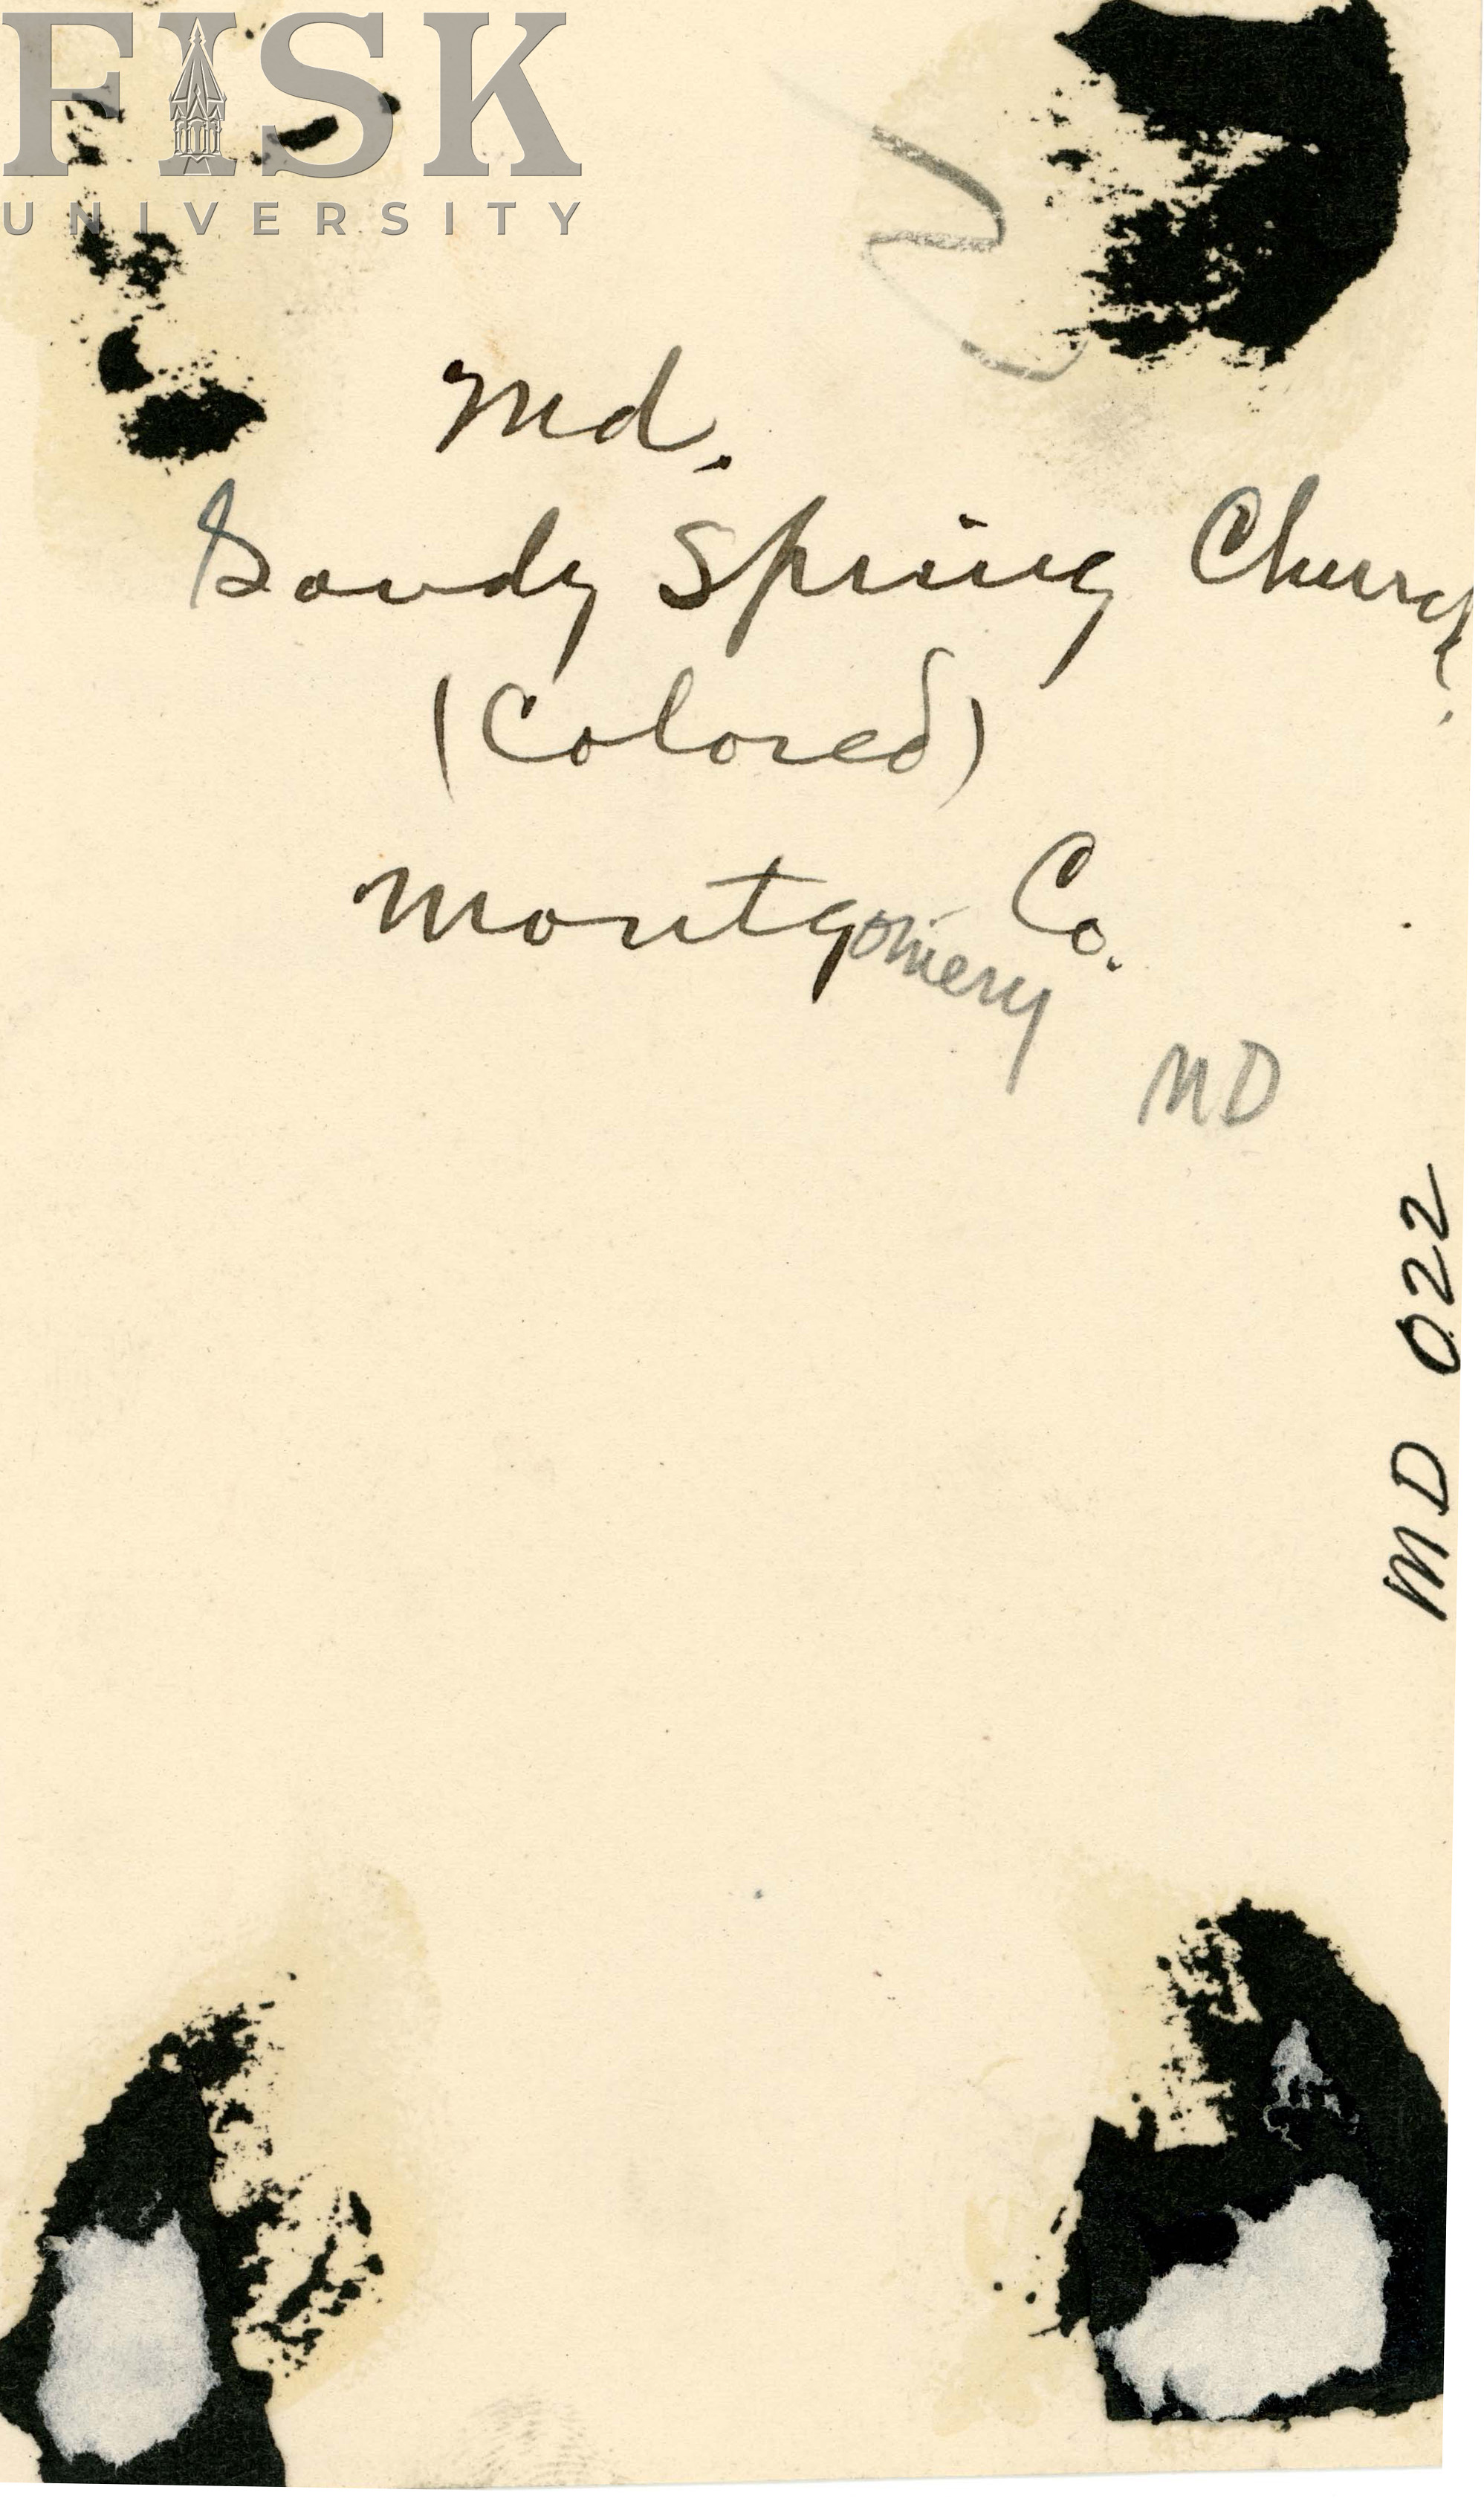 FISK
UNIVERSITY
Md.
Sandy Spring Church
(Colored)
Montgomery Co.
MD
MD 022